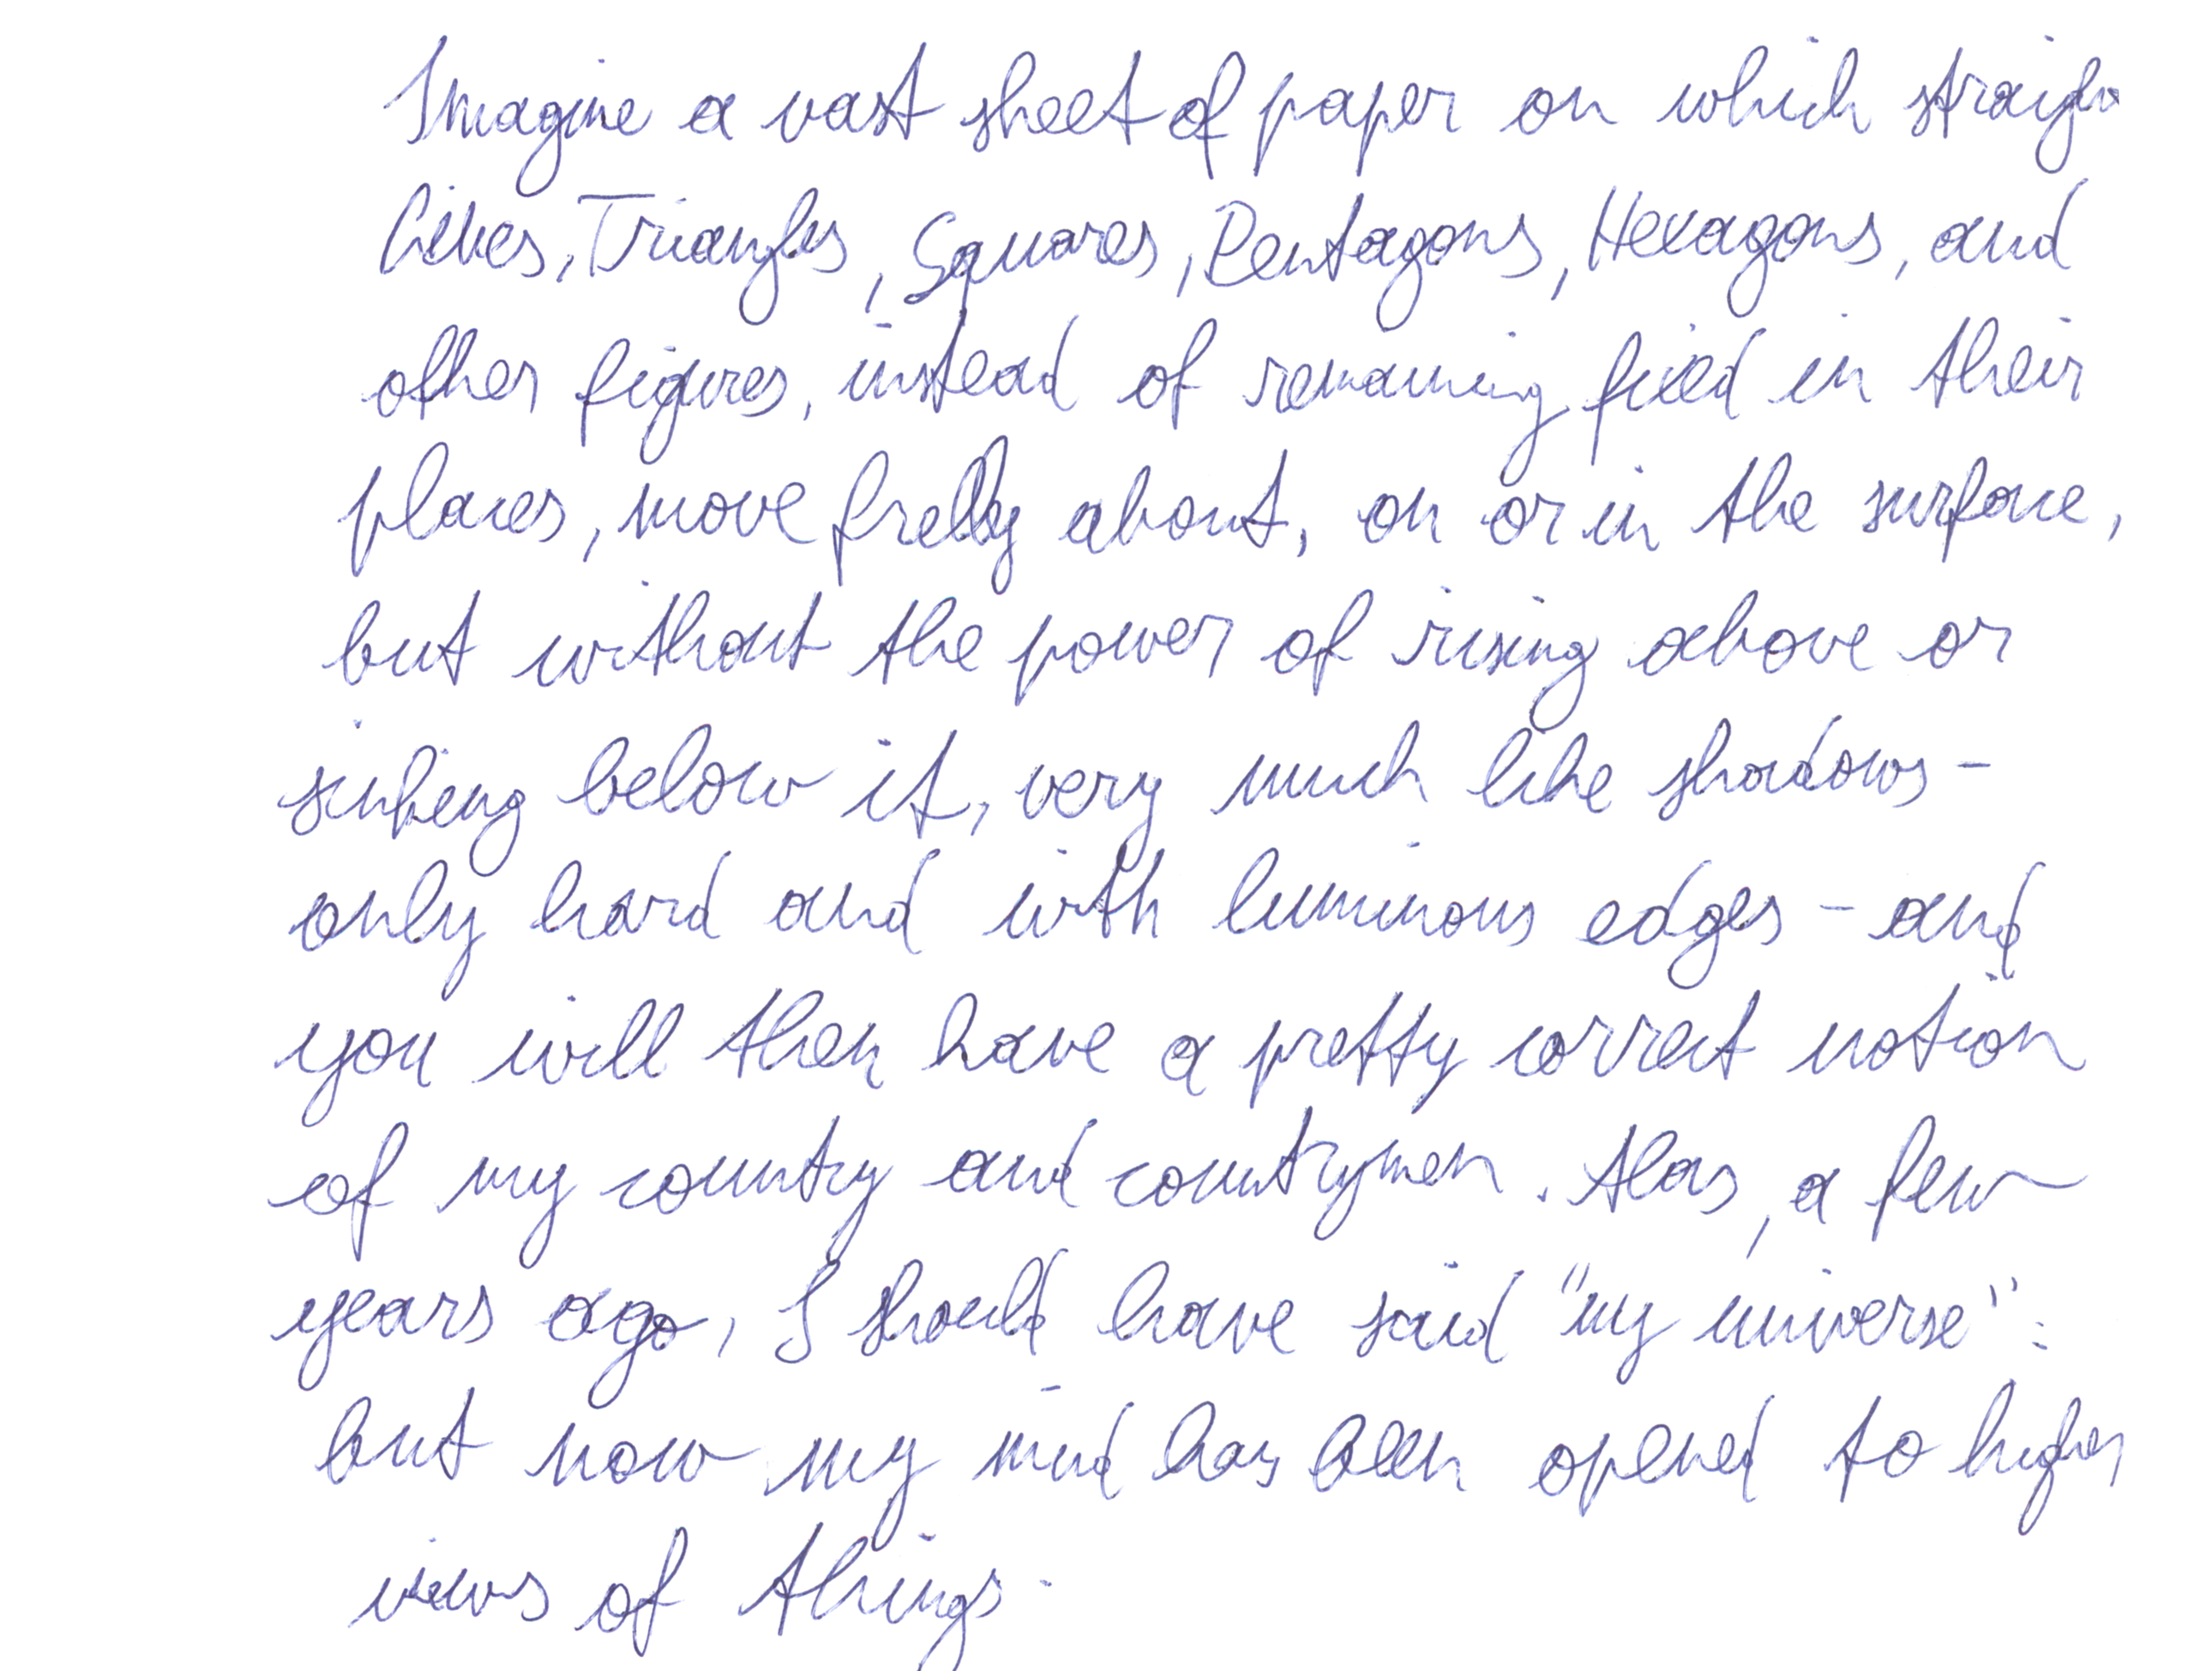 Imagine a vast sheet of paper on which straigh
Lines, Triangles, Squares, Pentagons, Hexagons, and
other figures, instead of remaining fixed in their
places, move freely about, on or in the surface,
but without the power of rising above or
sinking below it, very much like shadows -
only hard and with luminous edges - and
you will then have a pretty correct notion
of my country and countrymen. Alas, a few
years ago, I should have said "my universe":
but now my mind has been opened to higher
views of things.